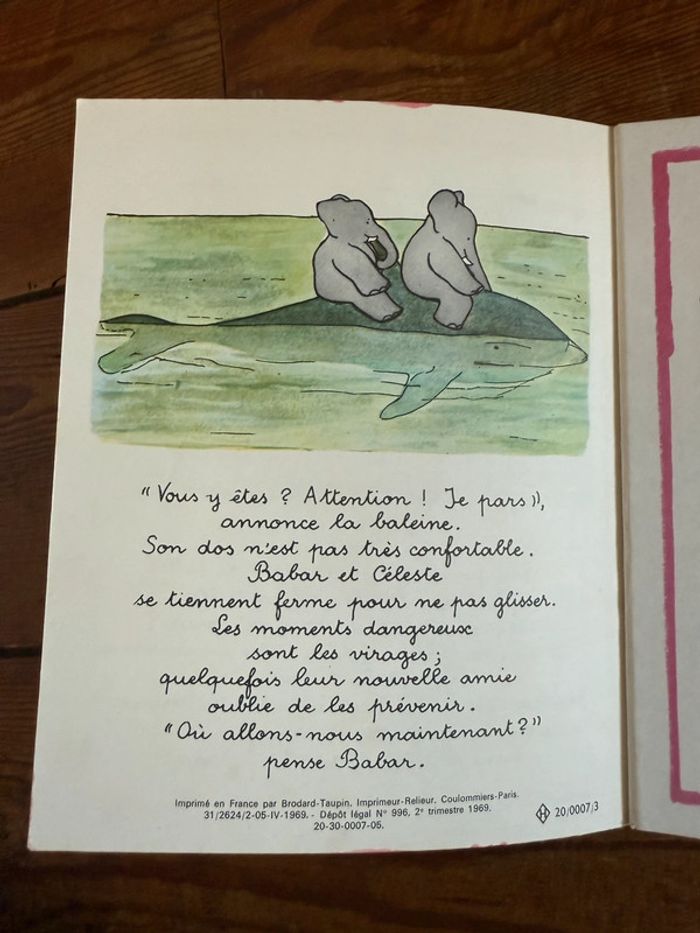 “Vous y êtes ? Attention ! Je pars”,
annonce la baleine.
Son dos n'est pas très confortable.
Babar et Céleste
se tiennent ferme pour ne pas glisser.
Les moments dangereux
sont les virages ;
quelquefois leur nouvelle amie
oublie de les prévenir.
“Où allons-nous maintenant ?”
pense Babar.
Imprimé en France par Brodard-Taupin, Imprimeur-Relieur, Coulommiers-Paris.
31/2624/2-05-IV-1969. - Dépôt légal N° 996, 2e trimestre 1969.
20-30-0007-05.
H 20/0007/3